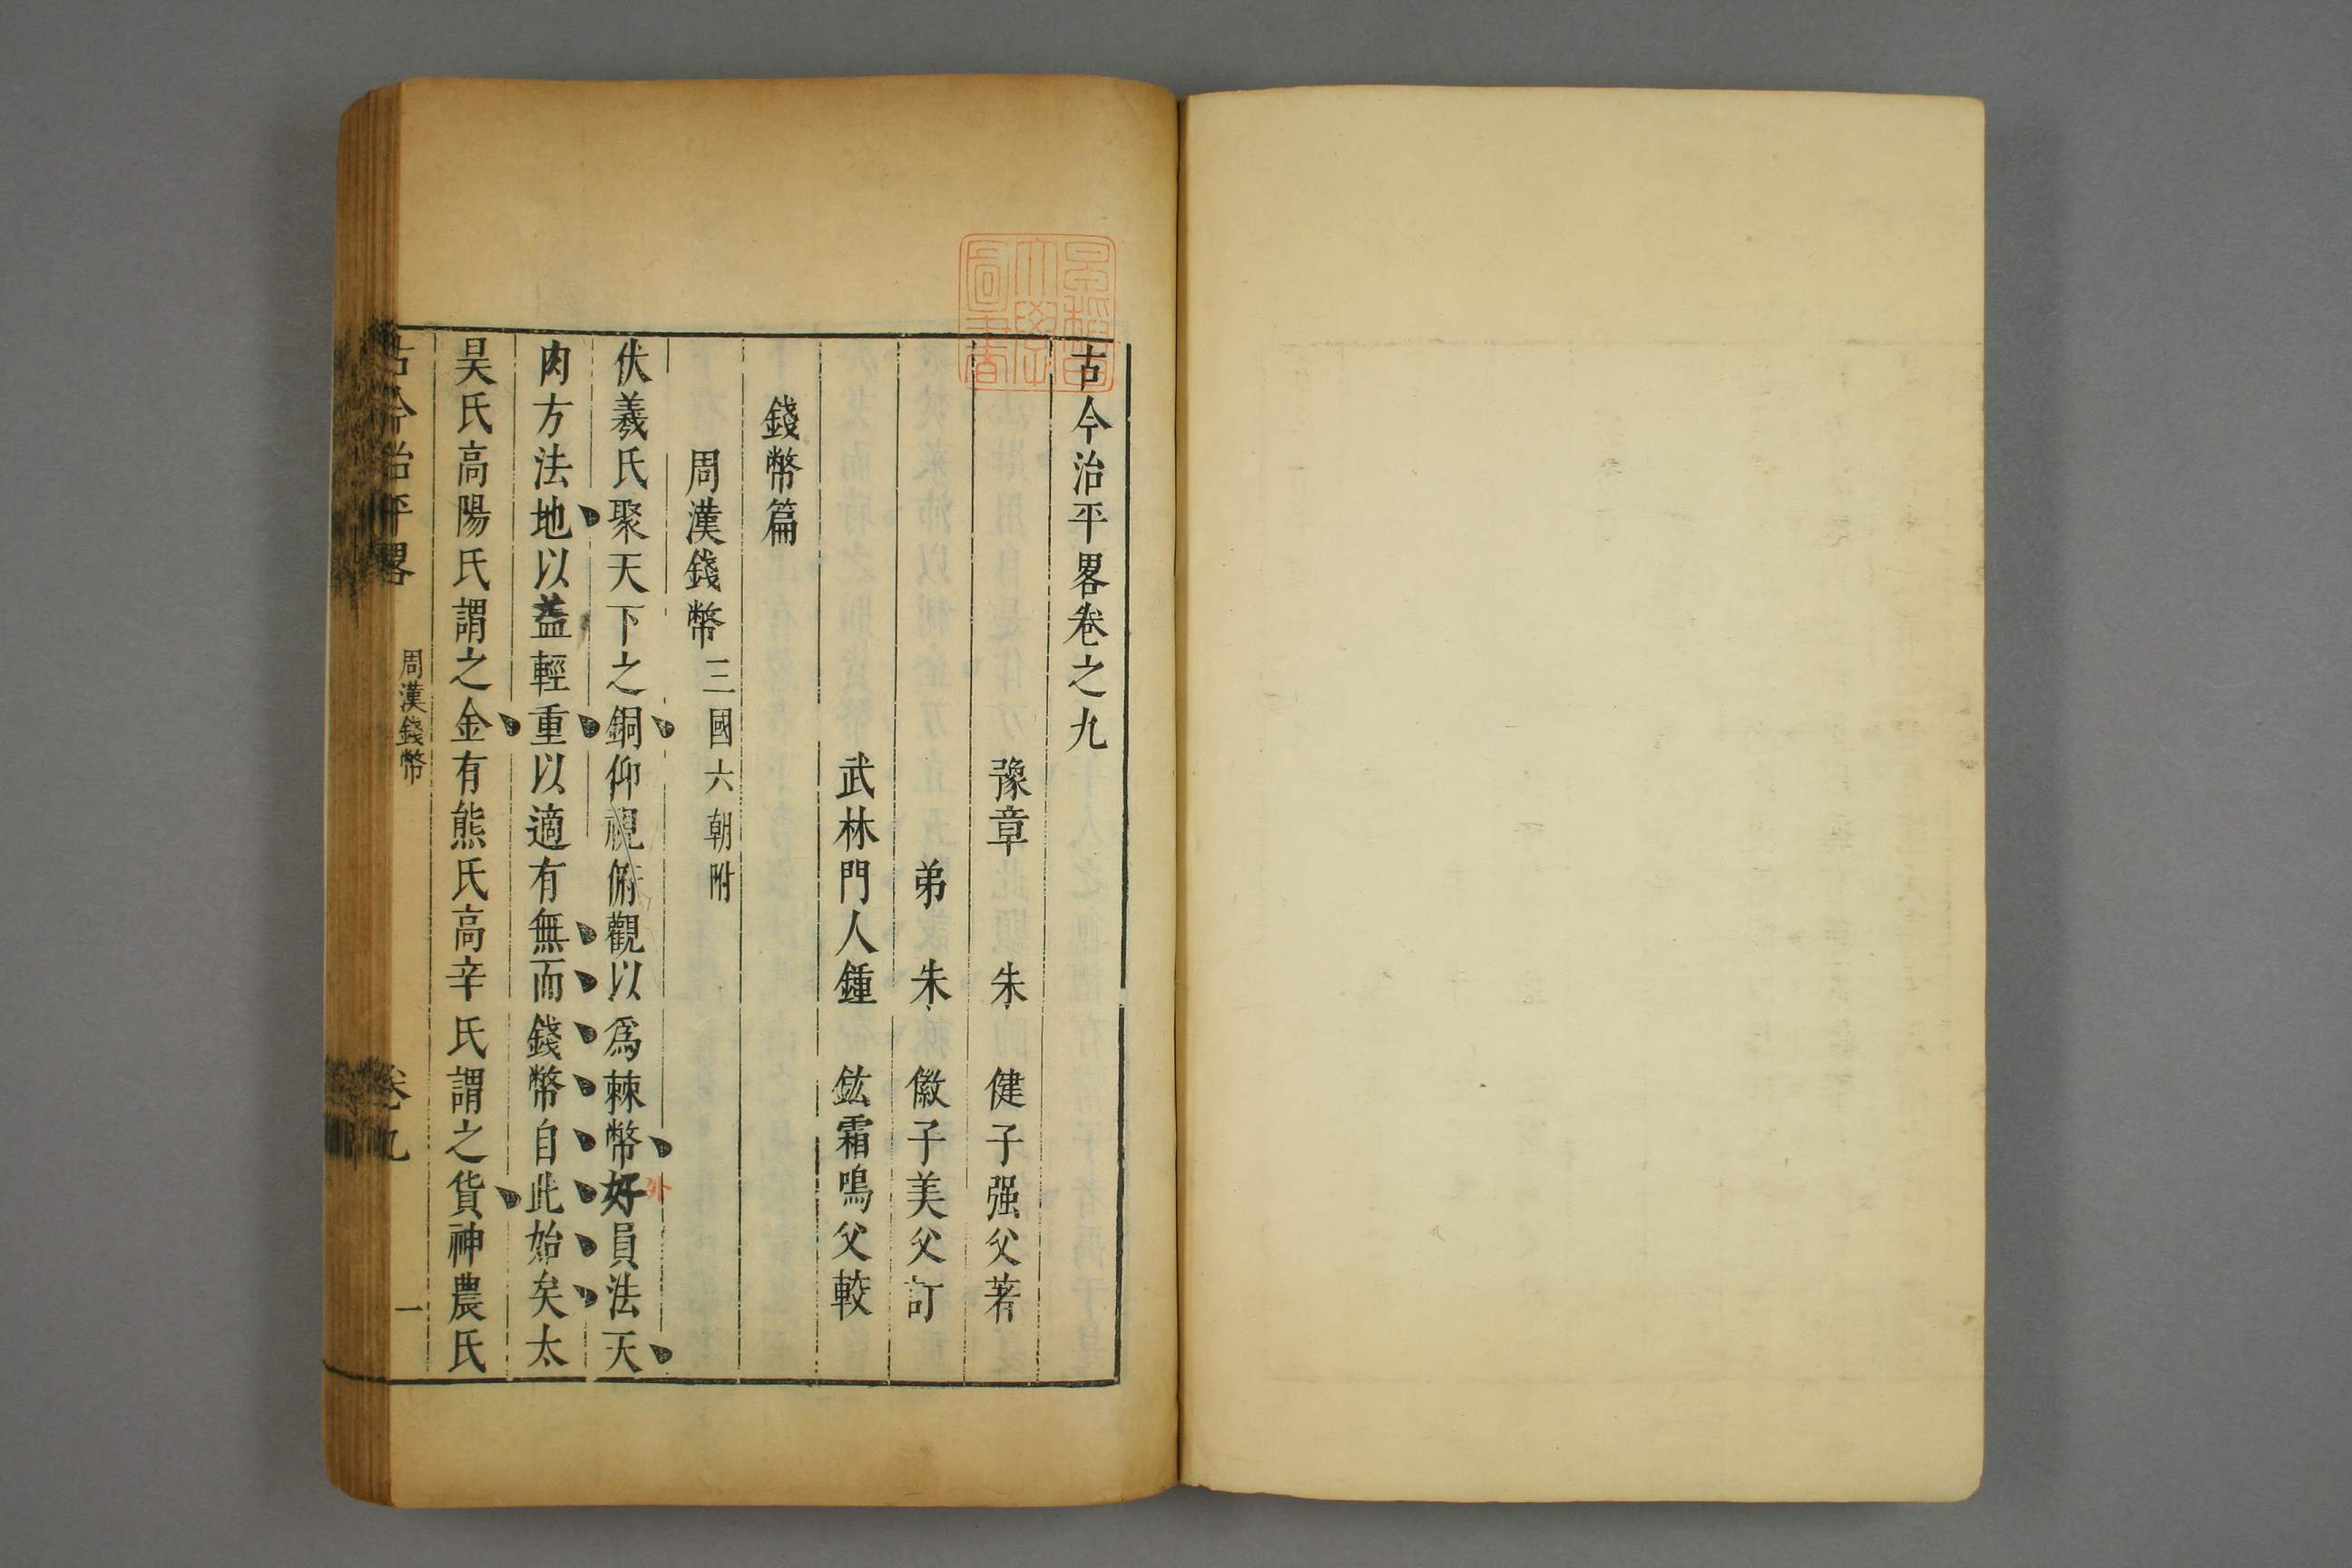 古今治平畧卷之九
豫章　朱　健子强父著
弟　朱　徽子美父訂
武林門人鍾　鉉霜鳴父較
錢幣篇
周漢錢幣三國六朝附
伏羲氏聚天下之銅仰視俯觀以爲棘幣好員法天
外
肉方法地以益輕重以適有無而錢幣自此始矣太
昊氏高陽氏謂之金有熊氏高辛氏謂之貨神農氏
古今治平畧　周漢錢幣　卷九　一
早稻田大學圖書